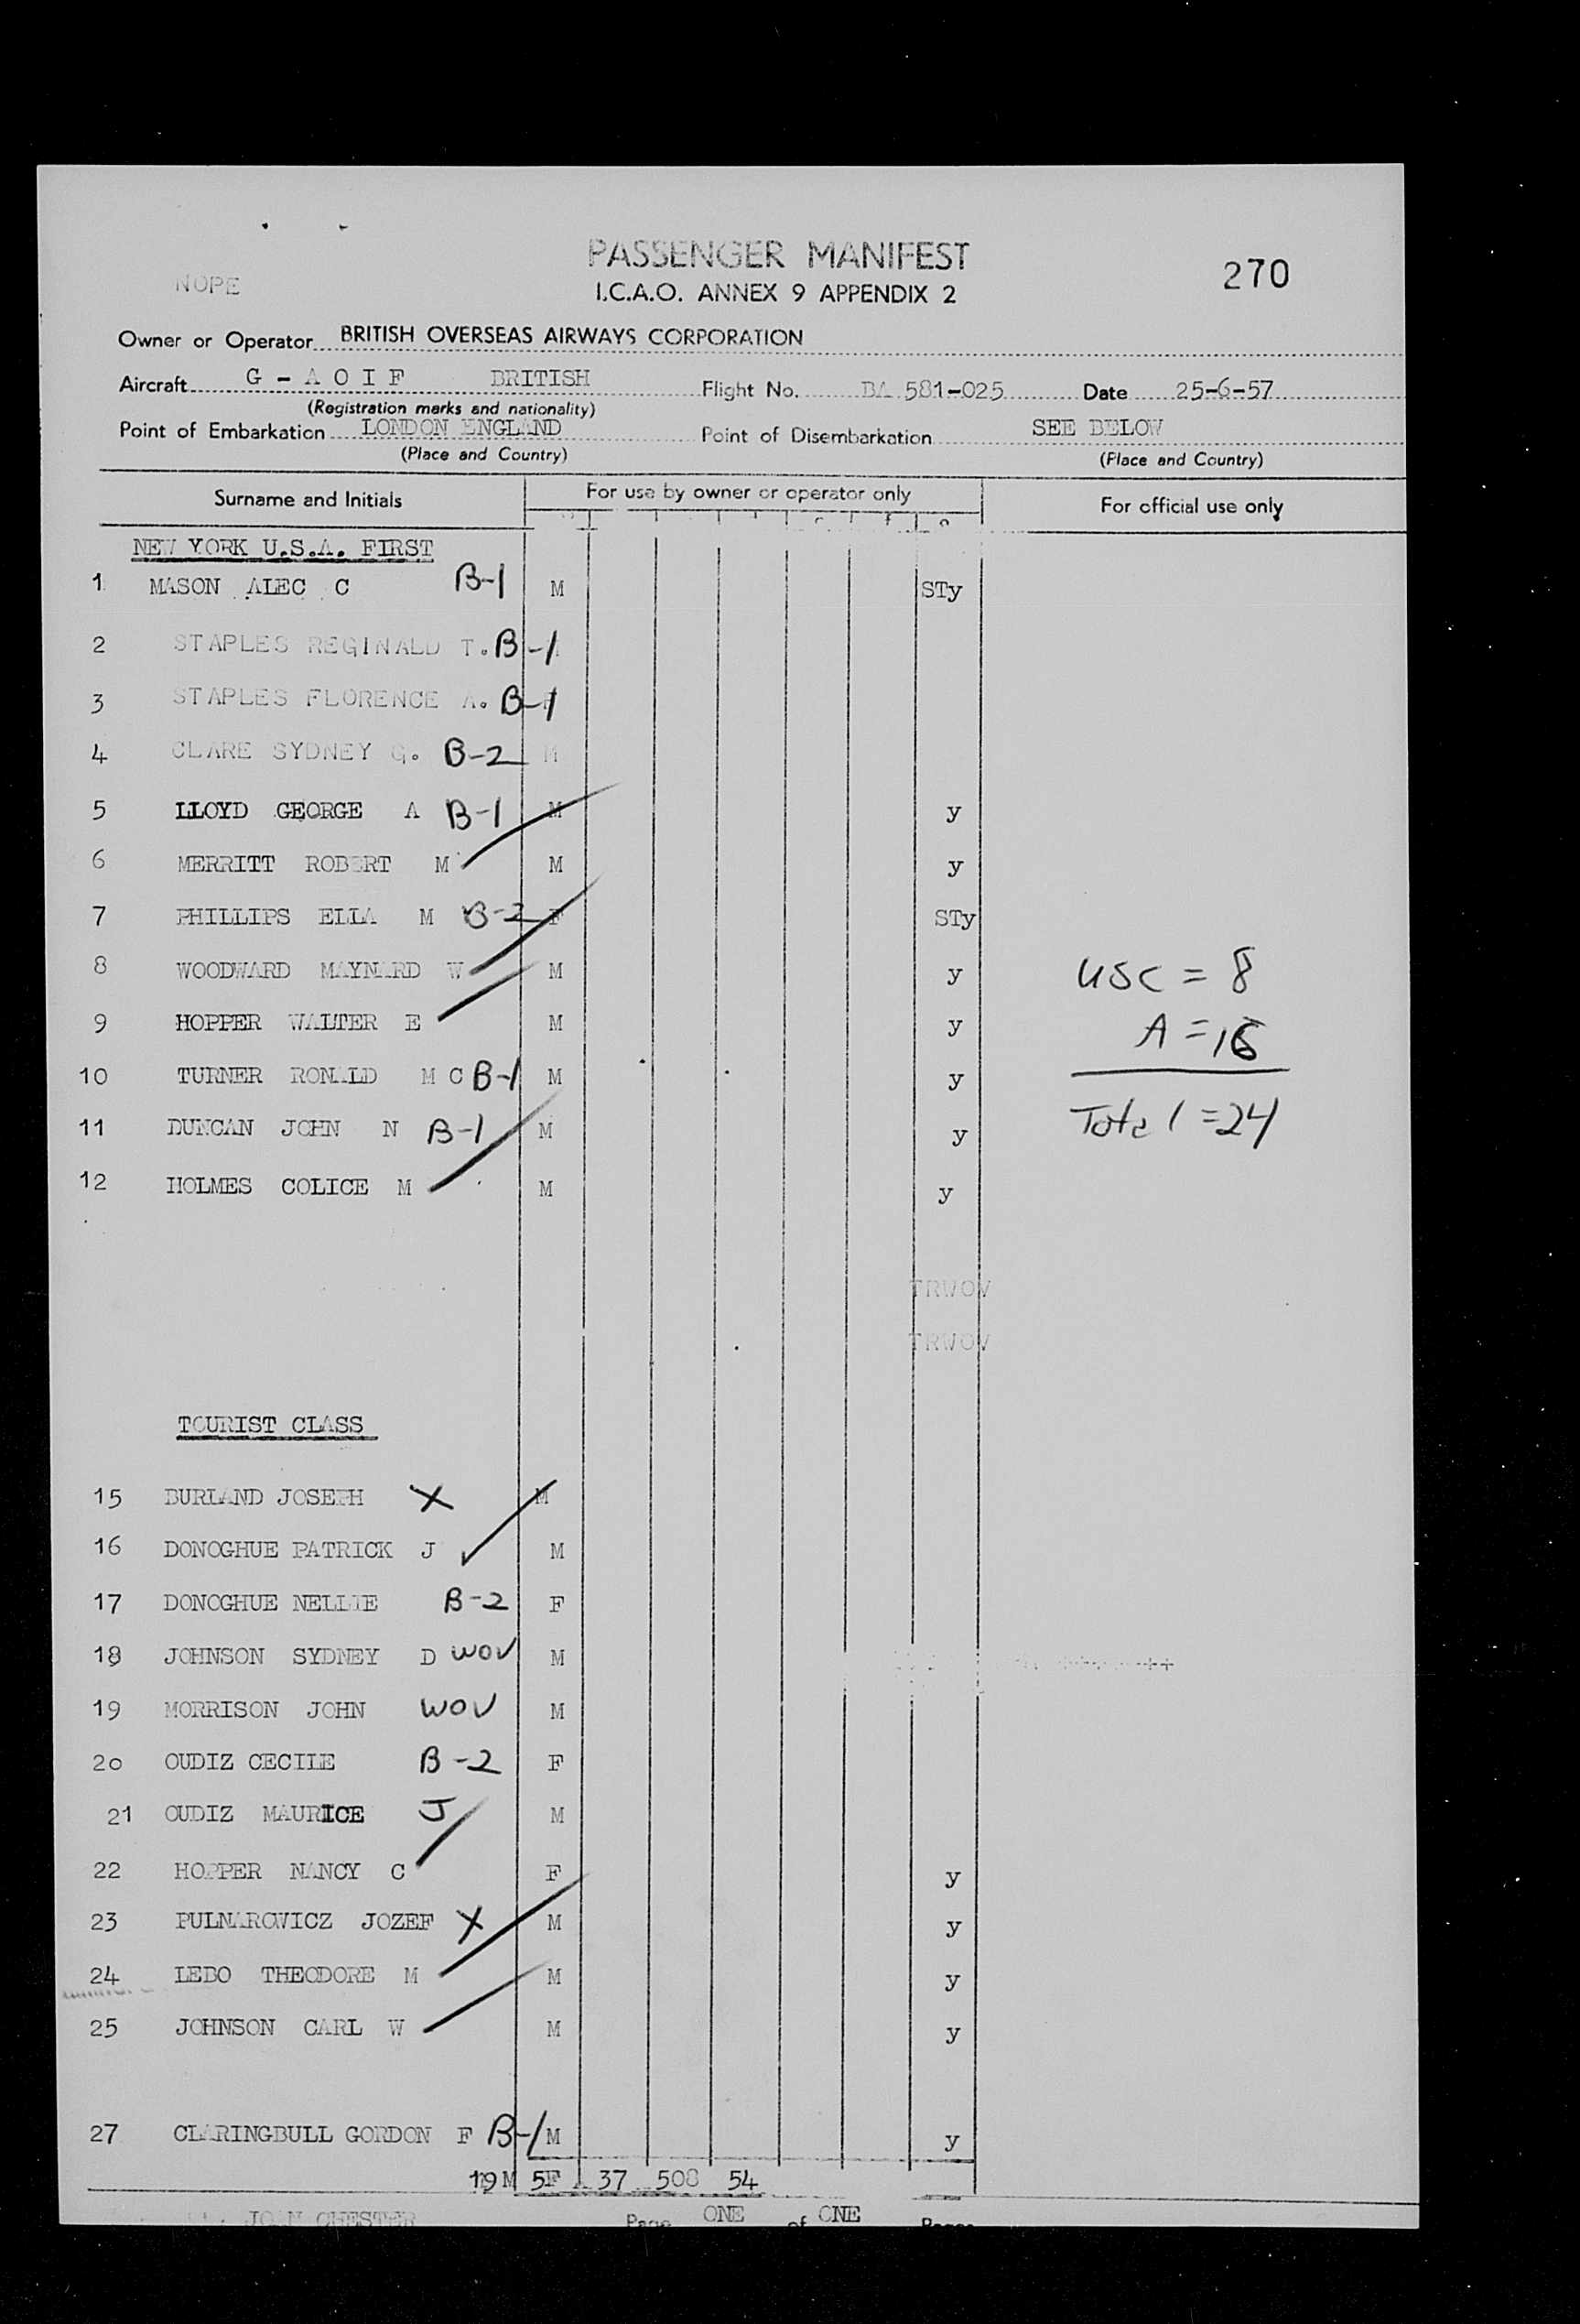 PASSENGER MANIFEST
NOPE
270
I.C.A.O. ANNEX 9 APPENDIX 2
Owner or Operator BRITISH OVERSEAS AIRWAYS CORPORATION
Aircraft G - A O I F BRITISH Flight No. BA 581-025 Date 25-6-57
(Registration marks and nationality)
Point of Embarkation LONDON ENGLAND Point of Disembarkation SEE BELOW
(Place and Country) (Place and Country)
Surname and Initials For use by owner or operator only For official use only
NEW YORK U.S.A. FIRST
1 MASON ALEC C B-1 M STy
2 STAPLES REGINALD T. B-1
3 STAPLES FLORENCE A. B-1
4 CLARE SYDNEY G. B-2 M
5 LLOYD GEORGE A B-1 M y
6 MERRITT ROBERT M M y
7 PHILLIPS ELLA M B-2 F STy
8 WOODWARD MAYNARD W M y
USC = 8
9 HOPPER WALTER E M y
A = 16
10 TURNER RONALD M C B-1 M y
11 DUNCAN JOHN N B-1 M y
Total = 24
12 HOLMES COLICE M M y
TRWOV
TRWOV
TOURIST CLASS
15 BURLAND JOSEPH X M
16 DONOGHUE PATRICK J M
17 DONOGHUE NELLIE B-2 F
18 JOHNSON SYDNEY D WOV M
19 MORRISON JOHN WOV M
20 OUDIZ CECILE B-2 F
21 OUDIZ MAURICE J M
22 HOPPER NANCY C F y
23 PULNAROWICZ JOZEF X M y
24 LEBO THEODORE M M y
25 JOHNSON CARL W M y
27 CLARINGBULL GORDON F B-1 M y
19M 5F 37 508 54
JOAN CHESTER Page ONE of ONE Pages